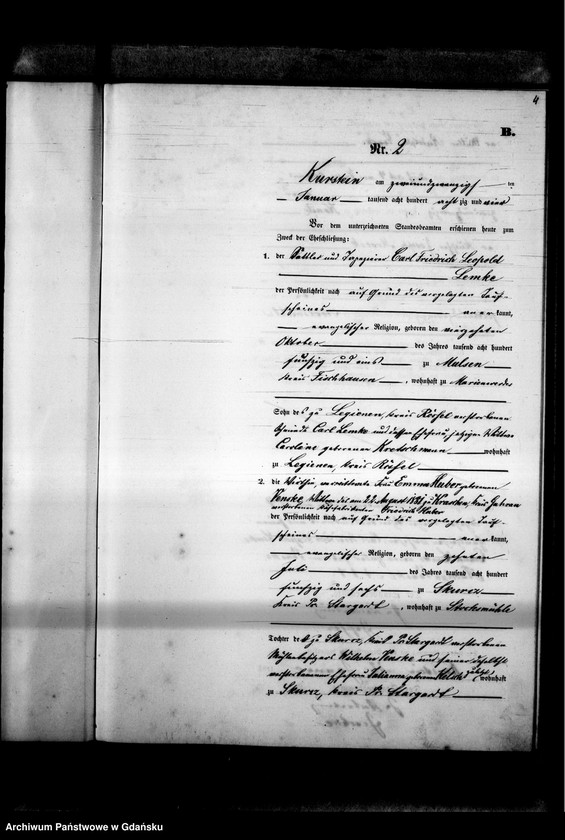 4
B.
Nr. 2
Kurstein am zweiundzwanzigsten
Januar tausend acht hundert achtzig und vier
Vor dem unterzeichneten Standesbeamten erschienen heute zum
Zweck der Eheschließung:
1. der Sattler und Tapezierer Carl Friedrich Leopold
Lemke
der Persönlichkeit nach auf Grund des vorgelegten Tauf-
scheines anerkannt,
evangelischer Religion, geboren den
Oktober des Jahres tausend acht hundert
fünfzig und eins zu Mulsen
Kreis Fischhausen, wohnhaft zu Marienwerder
Sohn des zu Legienen, Kreis Rößel verstorbenen
Carl Lemke und dessen Ehefrau, jetzigen Wittwe
Caroline geborenen Kretschmann wohnhaft
zu Legienen, Kreis Rößel
2. die Wirthin, verwittwete Frau Emma Huber geborenen
Venske, Wittwe des am 22. August 1881 zu Kreis
verstorbenen Friedrich Huber
der Persönlichkeit nach auf Grund des vorgelegten Tauf-
scheines anerkannt,
evangelischer Religion, geboren den zehnten
Juli des Jahres tausend acht hundert
fünfzig und sechs zu Skurcz
Kreis Pr. Stargardt, wohnhaft zu Stocksmühle
Tochter des zu Skurcz, Kreis Pr. Stargardt verstorbenen
Mühlenbesitzers Wilhelm Venske und seiner daselbst
verstorbenen Ehefrau Julianna geborenen zuletzt wohnhaft
zu Skurcz, Kreis Pr. Stargardt
Archiwum Państwowe w Gdańsku